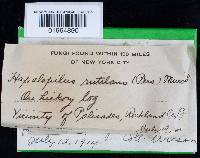 01664890
FUNGI FOUND WITHIN 100 MILES
OF NEW YORK CITY
Hapalopilus rutilans (Pers.) Murrill
On hickory log
Vicinity of Palisades, Rockland Co.
July 12, 1914